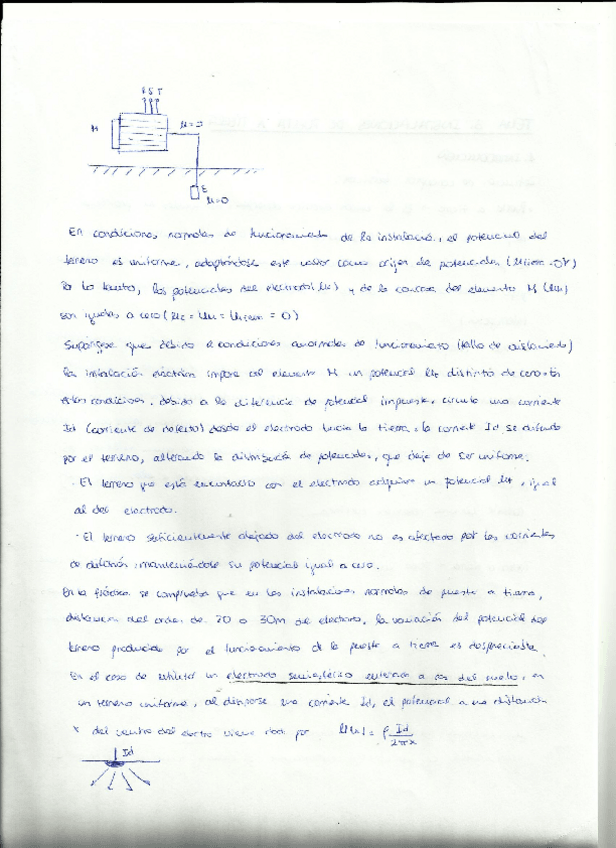 R S T
M
U=0
E
U=0
En condiciones normales de funcionamiento de la instalación, el potencial del
terreno es uniforme, adoptándose este valor como origen de potenciales (Uterr = 0V)
Por lo tanto, los potenciales del electrodo (UE) y de la carcasa del elemento M (UM)
son iguales a cero (UE = UM = Uterr = 0)
Supongase que debido a condiciones anormales de funcionamiento (fallo de aislamiento)
la instalación eléctrica impone al elemento M un potencial distinto de cero. En
estas condiciones, debido a la diferencia de potencial impuesta, circula una corriente
Id (corriente de defecto) desde el electrodo hacia la tierra, la corriente Id se difunde
por el terreno, alterando la distribución de potenciales, que deja de ser uniforme.
· El terreno que está en contacto con el electrodo adquiere un potencial , igual
al del electrodo.
· El terreno suficientemente alejado del electrodo no es afectado por las corrientes
de difusión, manteniéndose su potencial igual a cero.
En la práctica se comprueba que en las instalaciones normales de puesta a tierra,
distancias del orden de 20 o 30m del electrodo, la variación del potencial del
terreno producido por el funcionamiento de la puesta a tierra es despreciable.
En el caso de utilizar un electrodo semiesférico enterrado a ras del suelo, en
un terreno uniforme, al dispersar una corriente Id, el potencial a una distancia
x del centro del electro viene dado por U(x) = ρ Id / 2πx
Id